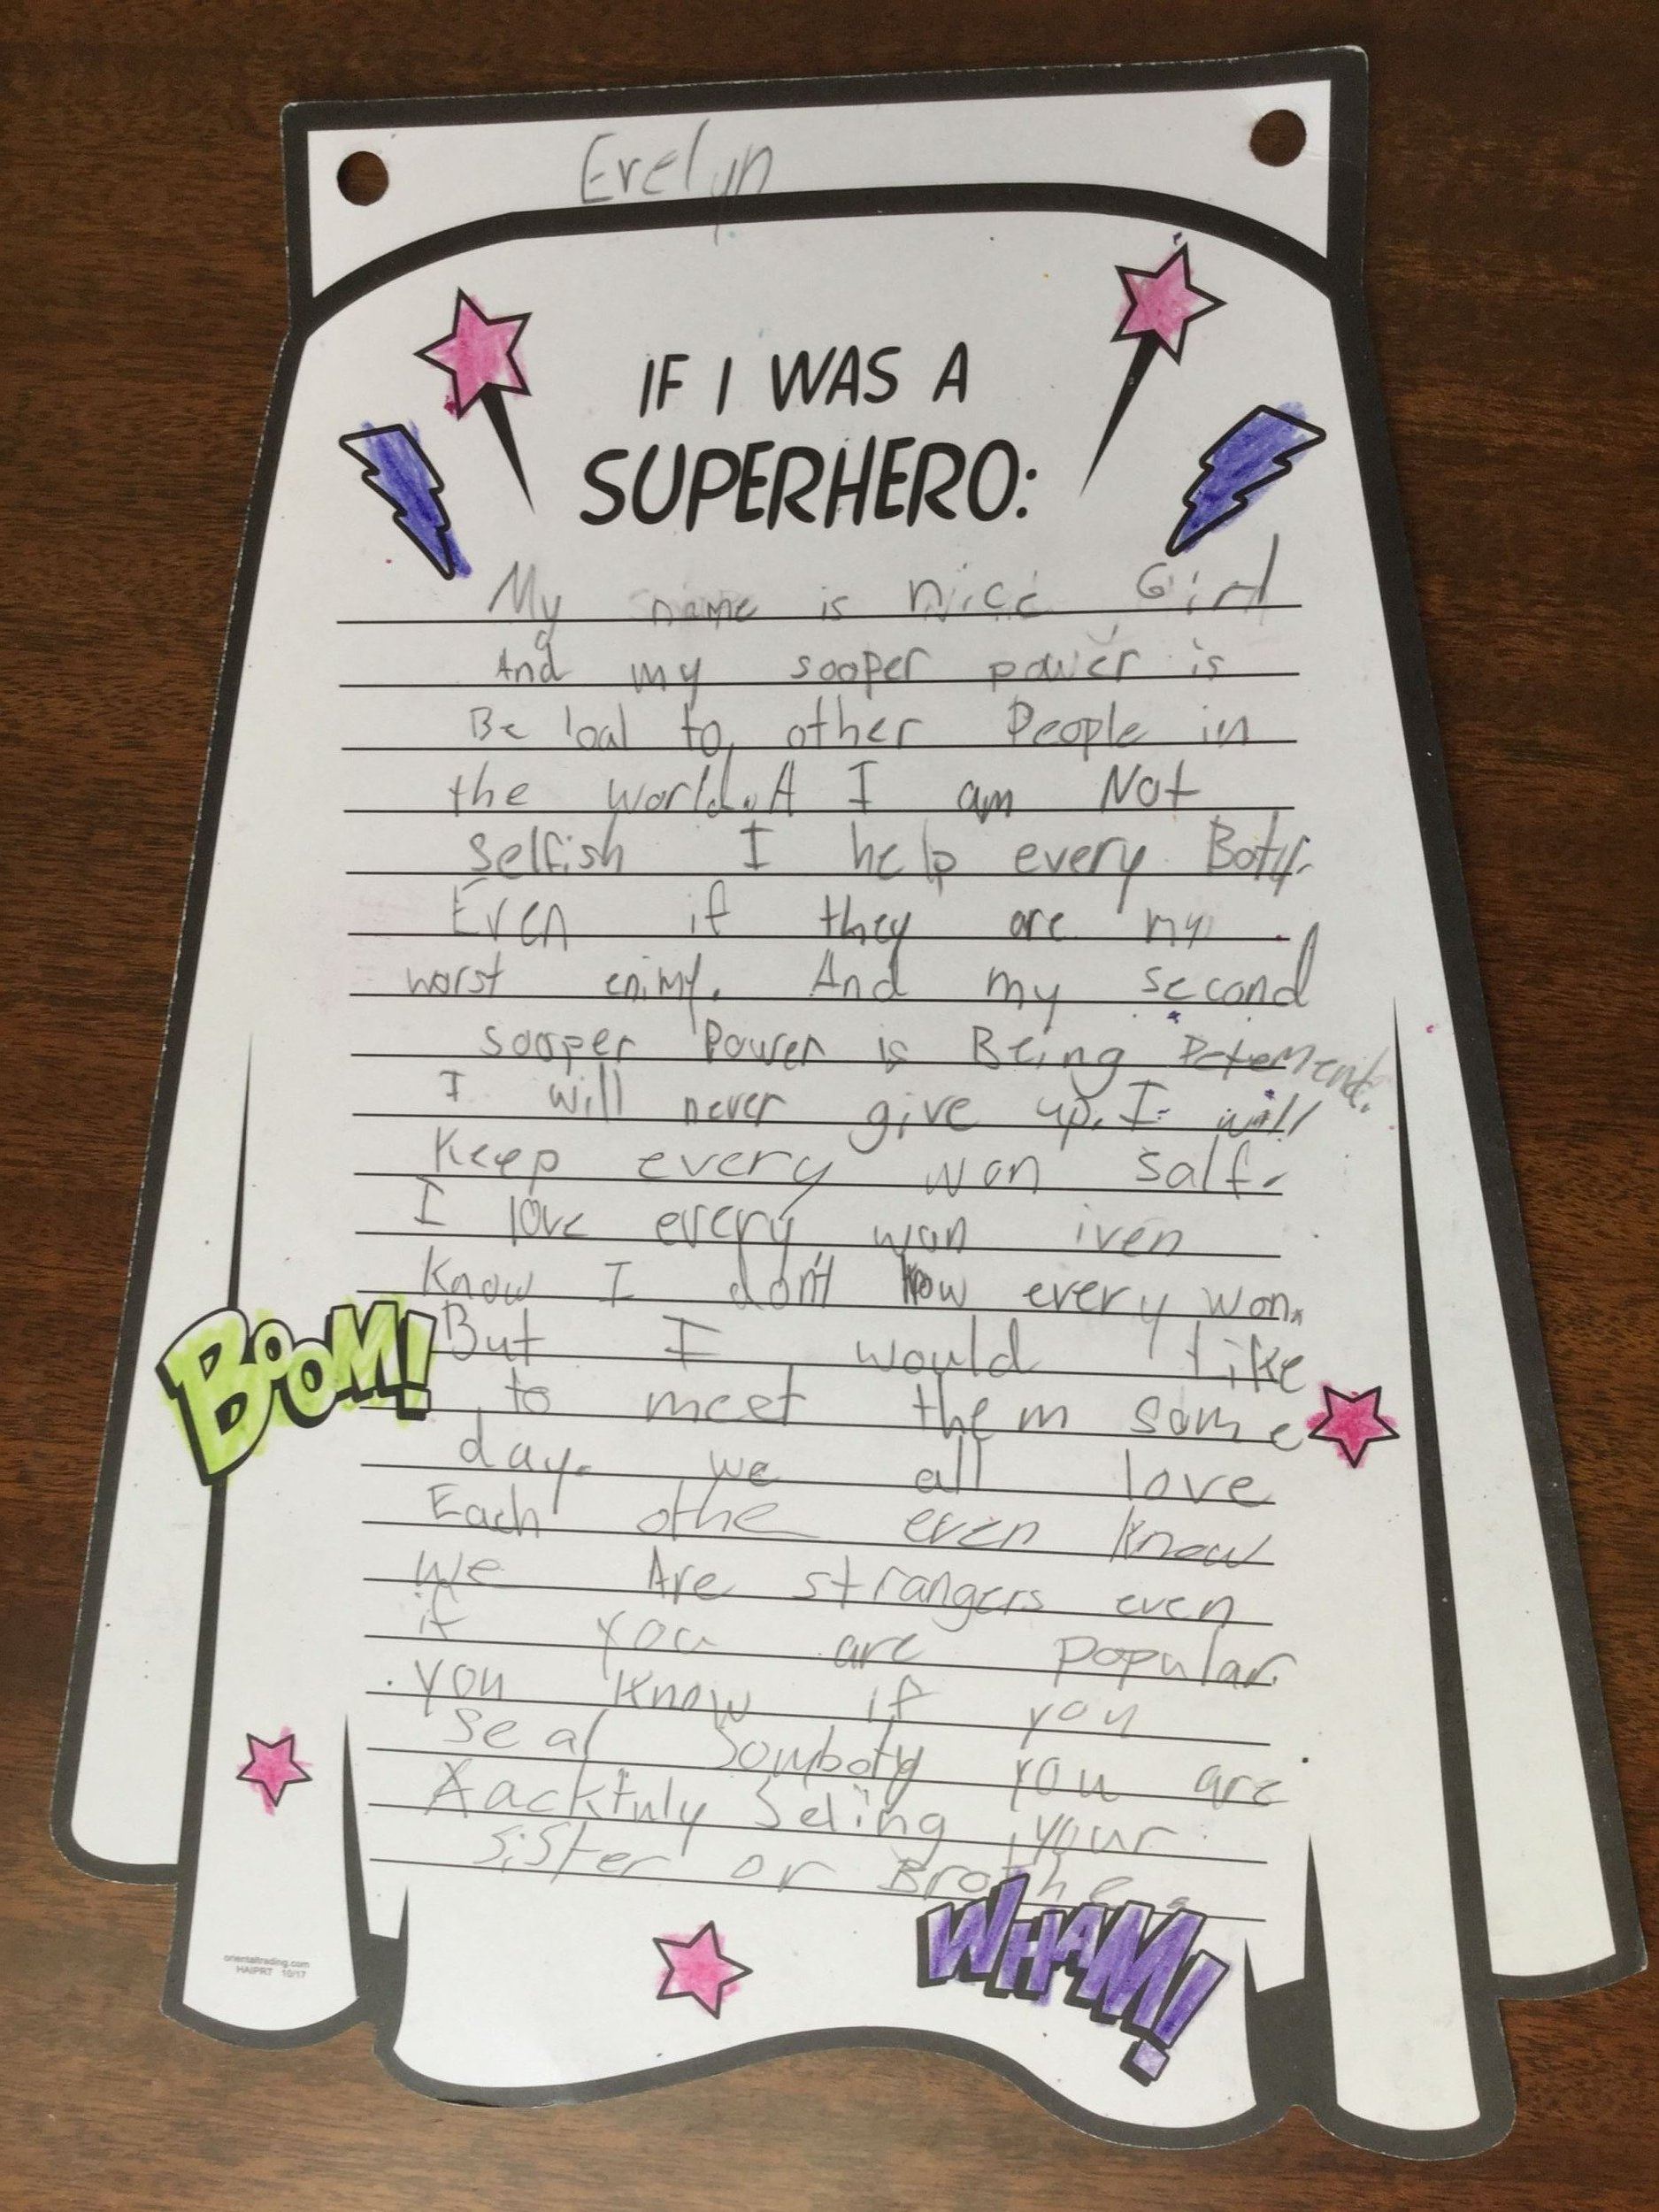 Evelyn
IF I WAS A
SUPERHERO:
My name is nice Girl
And my sooper power is
Be loal to other People in
the world. A I am Not
Selfish I help every Boty.
Even if they are my
worst enimy. And my second
sooper Power is Being Petement.
I will never give up. I will
Keep every won salf.
I love every won iven
Know I don't know every won.
But I would like
to meet them some
day. we all love
Each othe even know
we Are strangers even
if you are popular.
you know if you
seal Somboty you are
Aacktuly Seling your
sister or Brothe.
BOOM!
WHAM!
orientaltrading.com
HAIPRT 10/17